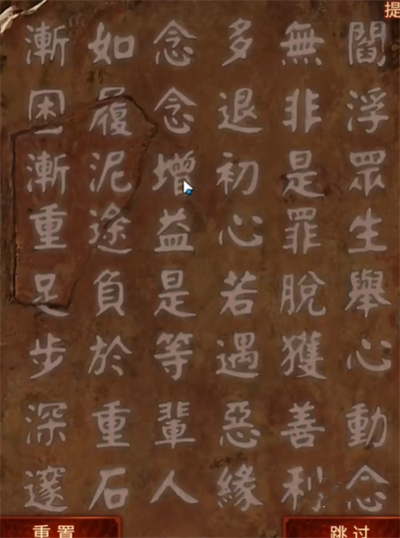 提
閻浮眾生舉心動念
無非是罪脫獲善利
多退初心若遇惡緣
念念增益是等輩人
如履泥途負於重石
漸困漸重足步深邃
重置
跳过